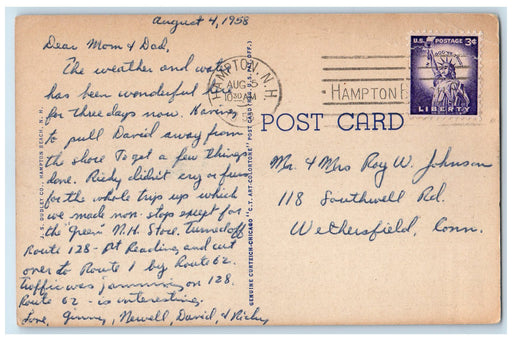 August 4, 1958
Dear Mom & Dad,
The weather and water
has been wonderful
for three days now. Having
to pull David away from
the shore to get a few things
done. Ricky didn't cry or fuss
for the whole trip up which
we made non-stop except for
the "green" N.H. Store. Turned off
Route 128 - at Reading and cut
over to Route 1 by Route 62.
Traffic was jamming on 128.
Route 62 - is interesting.
Love, Ginny, Newell, David, & Ricky
J. S. DUDLEY CO., HAMPTON BEACH, N. H.
GENUINE CURTEICH-CHICAGO "C.T. ART-COLORTONE" POST CARD (REG. U.S. PAT. OFF.)
HAMPTON, N.H.
AUG 5
10 30 AM
HAMPTON
U.S. POSTAGE 3¢
IN GOD WE TRUST
LIBERTY
POST CARD
Mr. & Mrs Roy W. Johnson
118 Southwell Rd.
Wethersfield, Conn.